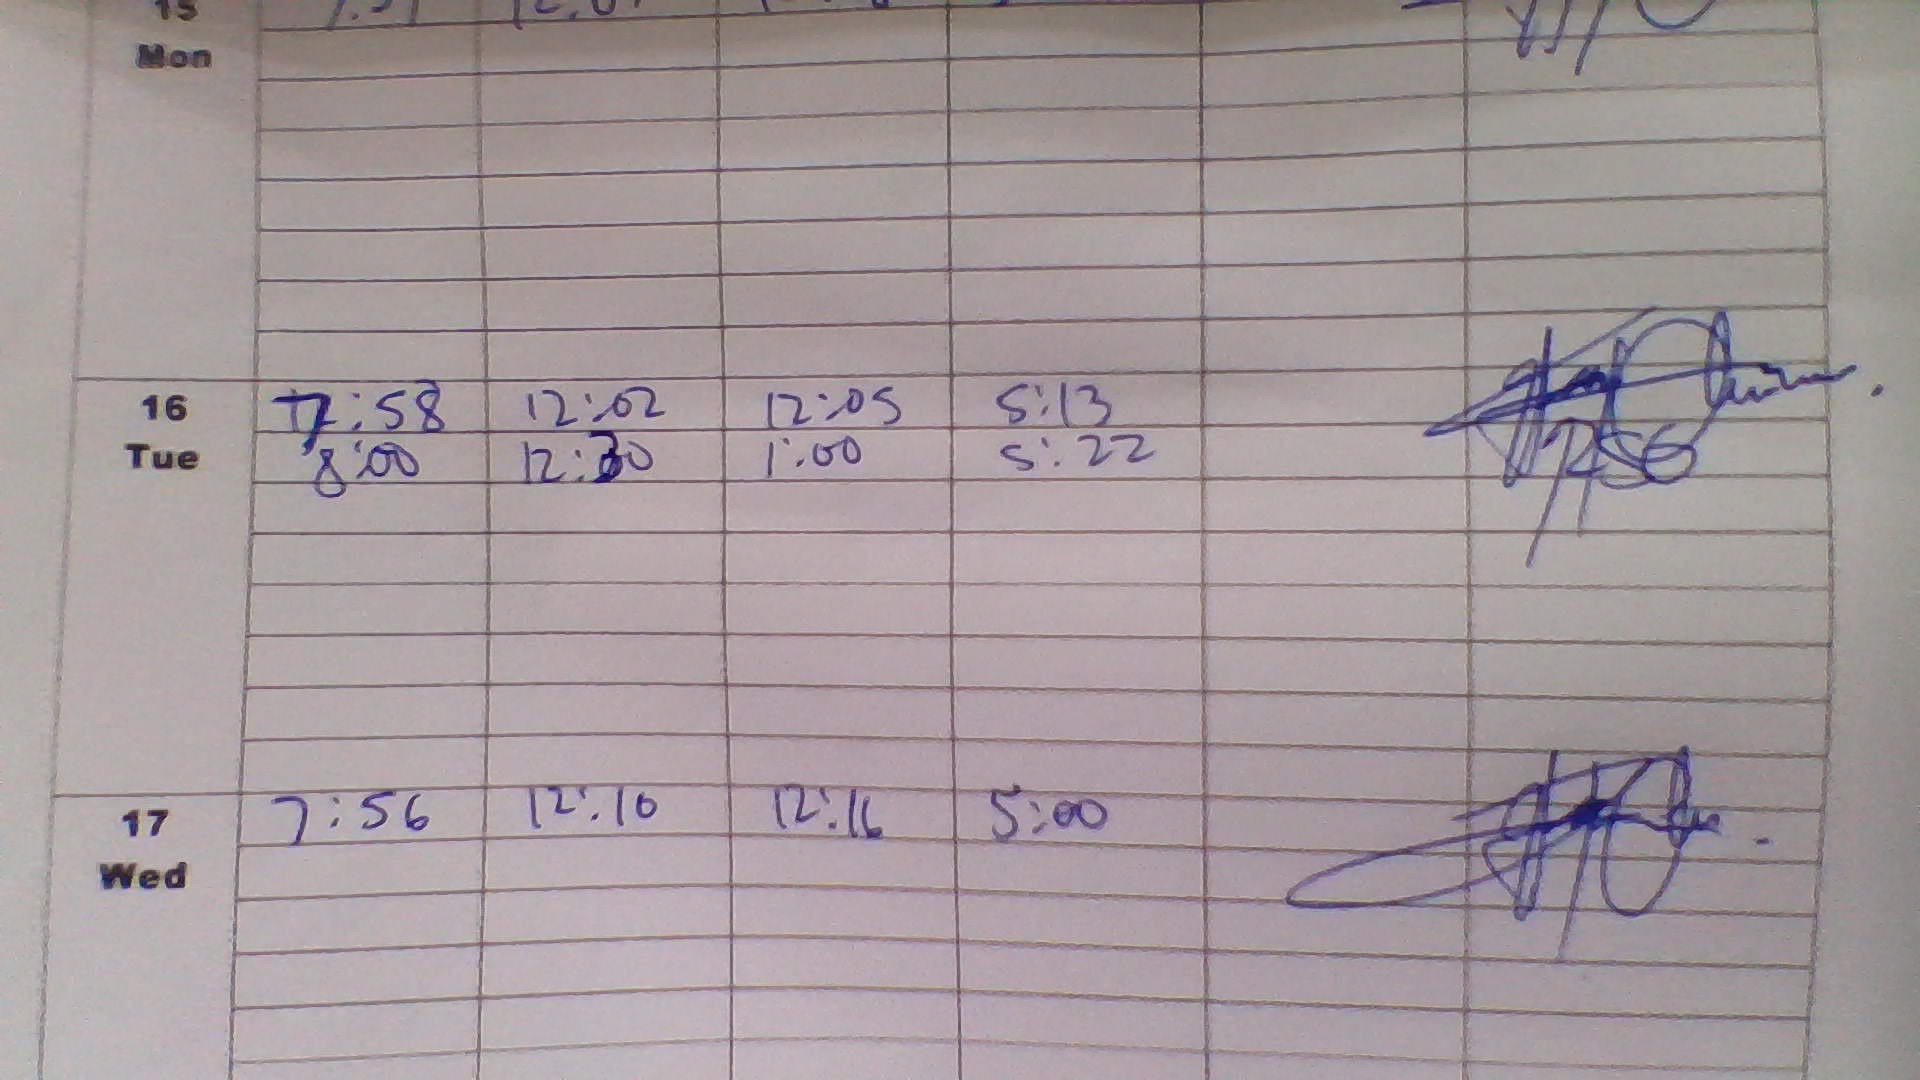 15
Mon
16 7:58 12:02 12:05 5:13
Tue 8:00 12:30 1:00 5:22
17 7:56 12:10 12:16 5:00
Wed